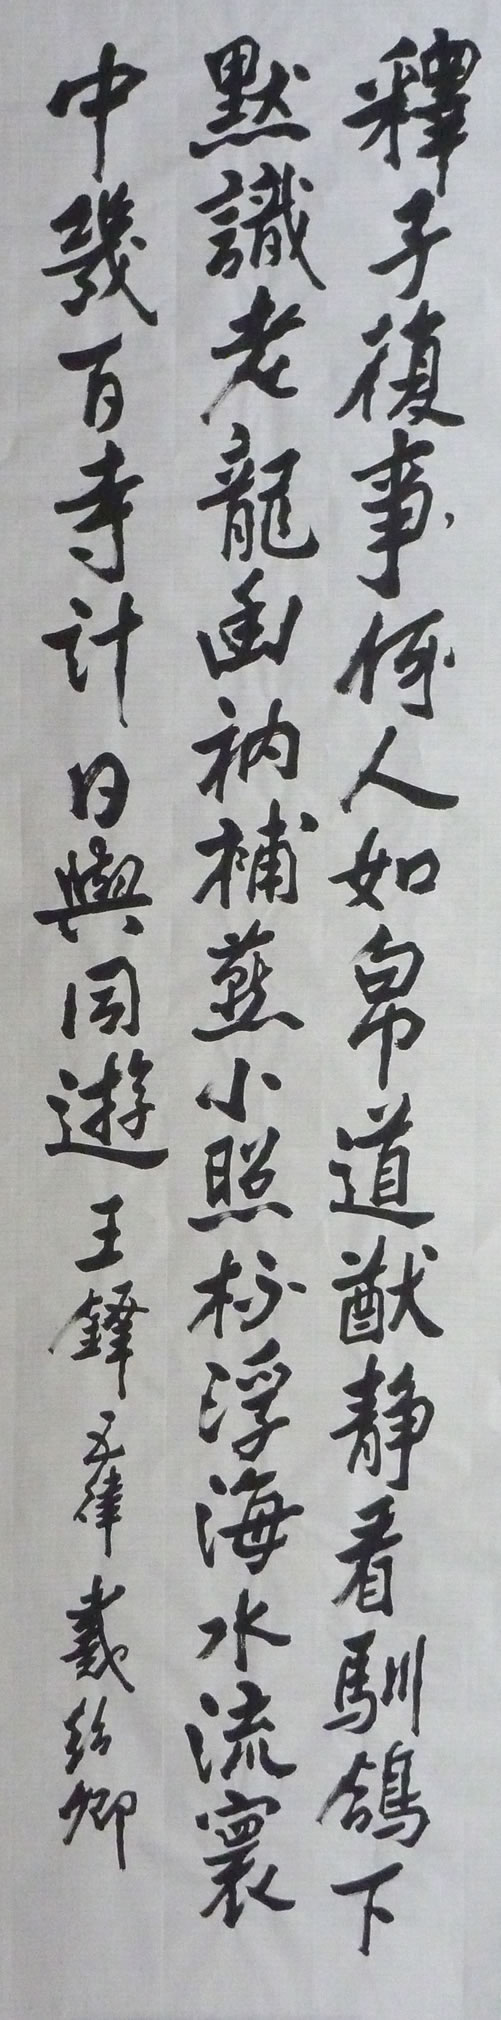 釋子復事何人如帛道猷靜看馴鴿下
默識老龍幽衲補燕小照杉浮海水流寰
中幾百寺計日與同遊王鐸五律戴紹卿